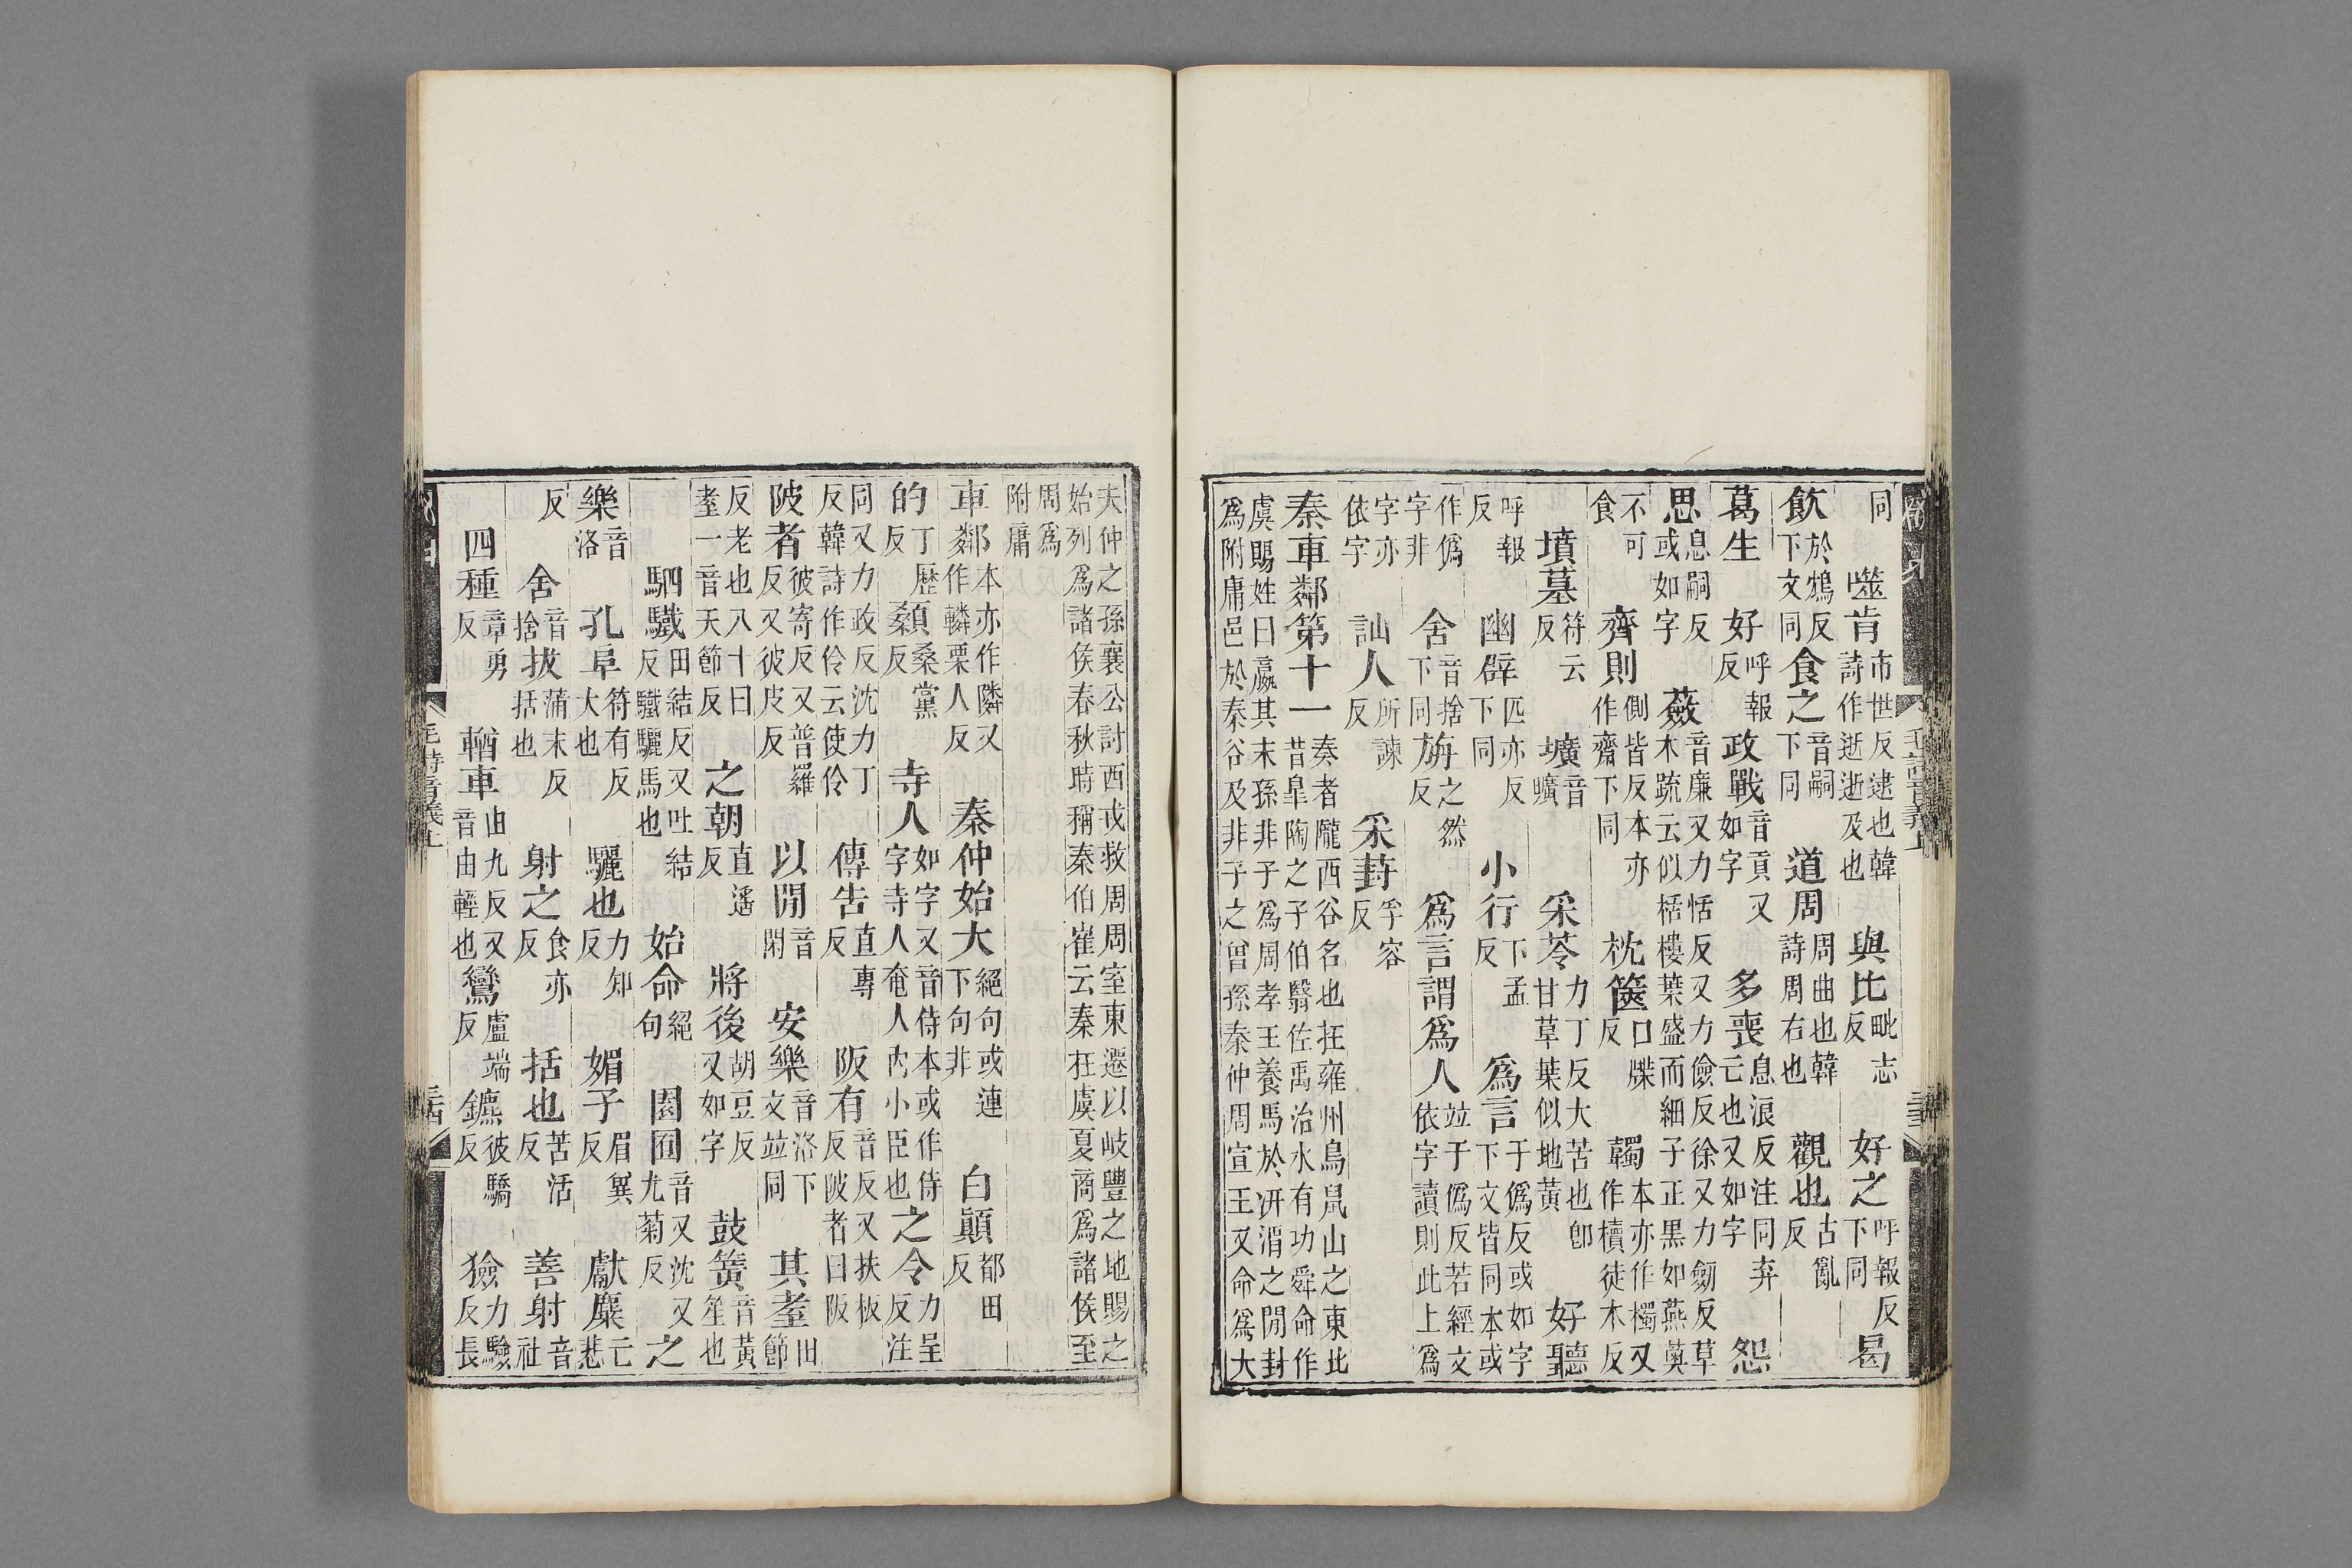 同噬肯市世反逮也韓詩作逝逝及也與比毗志反好之呼報反下同曷
飲於鴆反下文同食之音嗣下同道周周曲也韓詩周右也觀也古亂反
葛生好呼報反政戰音貢又如字多喪息浪反注同弃亡也又如字怨
思息嗣反或如字蘞音廉又力恬反又力儉反徐又力劒反草木疏云似栝樓葉盛而細子正黑如燕薁
不可食齊則側皆反本亦作齋下同枕篋口牒反韣本亦作襡又作櫝徒木反
墳墓符云反壙音曠采苓力丁反大苦也卽甘草葉似地黃好聽
呼報反幽辟匹亦反下同小行下孟反爲言于僞反或如字下文皆同本或
作僞字非舍音捨下同旃之然反爲言謂爲人竝于僞反若經文依字讀則此上爲
字亦依字訕人所諫反采葑孚容反
秦車鄰第十一秦者隴西谷名也在雍州鳥鼠山之東北昔皐陶之子伯翳佐禹治水有功舜命作
虞賜姓曰嬴其末孫非子爲周孝王養馬於汧渭之閒封爲附庸邑於秦谷及非子之曾孫秦仲周宣王又命爲大
夫仲之孫襄公討西戎救周周室東遷以岐豐之地賜之始列爲諸侯春秋時稱秦伯崔云秦在虞夏商爲諸侯至
周爲附庸
車鄰本亦作隣又作轔栗人反秦仲始大絕句或連下句非白顚都田反
的丁歷反顙桑黨反寺人如字又音侍本或作侍字寺人奄人內小臣也之令力呈反注
同又力政反沈力丁反韓詩作伶云使伶傳告直專反阪有音反又扶板反陂者曰阪
陂者彼寄反又普羅反又彼皮反以閒音閑安樂音洛下文竝同其耋田節
反老也八十曰耋一音天節反之朝直遙反將後胡豆反又如字鼓簧音黃笙也
駟驖田結反又吐結反驖驪馬也始命絕句園囿音又沈又尤菊反之
樂音洛孔阜符有反大也驪也力知反媚子眉冀反獻麋亡悲
反舍音捨拔蒲末反括也射之食亦反括也苦活反善射音社
四種章勇反輶車由九反又音由輕也鸞盧端反鑣彼驕反獫力驗反長
毛詩音義上
毛詩音義上